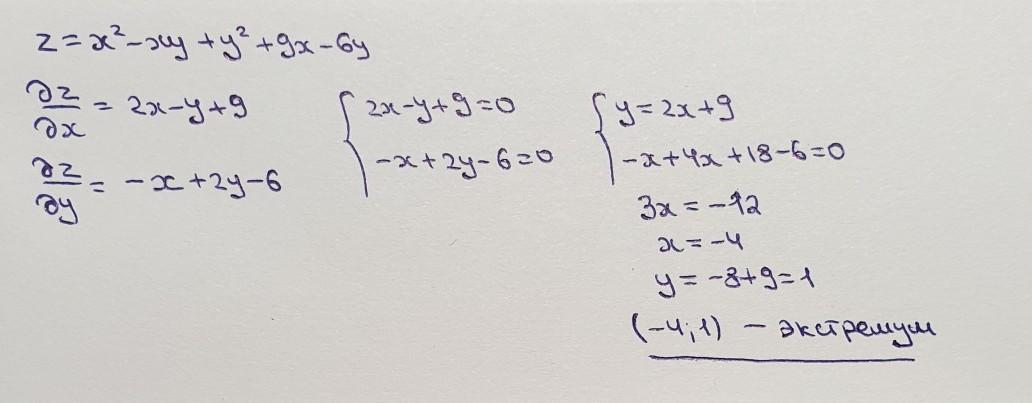 z = x² - xy + y² + 9x - 6y
∂z/∂x = 2x - y + 9
∂z/∂y = -x + 2y - 6
{ 2x - y + 9 = 0
-x + 2y - 6 = 0
{ y = 2x + 9
-x + 4x + 18 - 6 = 0
3x = -12
x = -4
y = -8 + 9 = 1
(-4; 1) - экстремум